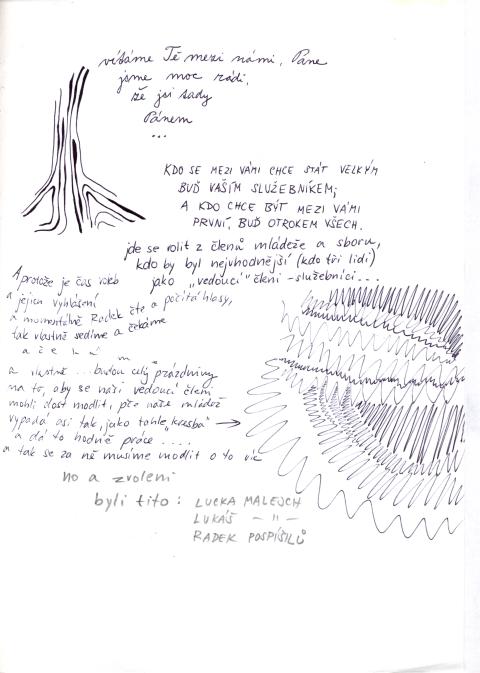 vítáme Tě mezi námi, Pane
jsme moc rádi,
že jsi tady
Pánem
...
KDO SE MEZI VÁMI CHCE STÁT VELKÝM
BUĎ VAŠÍM SLUŽEBNÍKEM;
A KDO CHCE BÝT MEZI VÁMI
PRVNÍ, BUĎ OTROKEM VŠECH.
jde se volit z členů mládeže a sboru,
kdo by byl nejvhodnější (kdo tři lidi)
jako „vedoucí" členi - služebníci...
A protože je čas voleb
a jejich vyhlášení
a momentálně Radek čte a počítá hlasy,
tak vlastně sedíme a čekáme
a č e k á
m
a vlastně ... budou celý prázdniny
na to, aby se naši vedoucí členi
mohli dost modlit, pře naše mládež
vypadá asi tak, jako tahle „krasba" →
a dá to hodně práce ....
a tak se za ně musíme modlit o to víc
no a zvoleni
byli tito: LUCKA MALEJCH
LUKÁŠ - " -
RADEK POSPÍŠILŮ